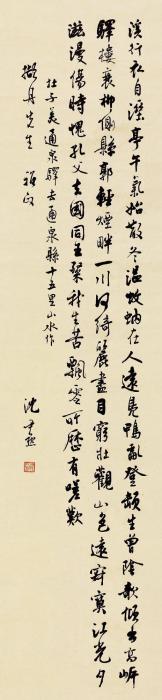 溪行衣自溼亭午氣始散冬溫蚊蚋在人遠鳧鴨亂登頓生曾陰欹傾出高岸
驛樓衰柳側縣郭輕煙畔一川何綺麗盡目窮壯觀山色遠寂寞江光夕
滋漫傷時愧孔父去國同王粲我生苦飄零所歷有嗟歎
杜子美通泉驛去通泉縣十五里山水作
丹先生
沈尹默